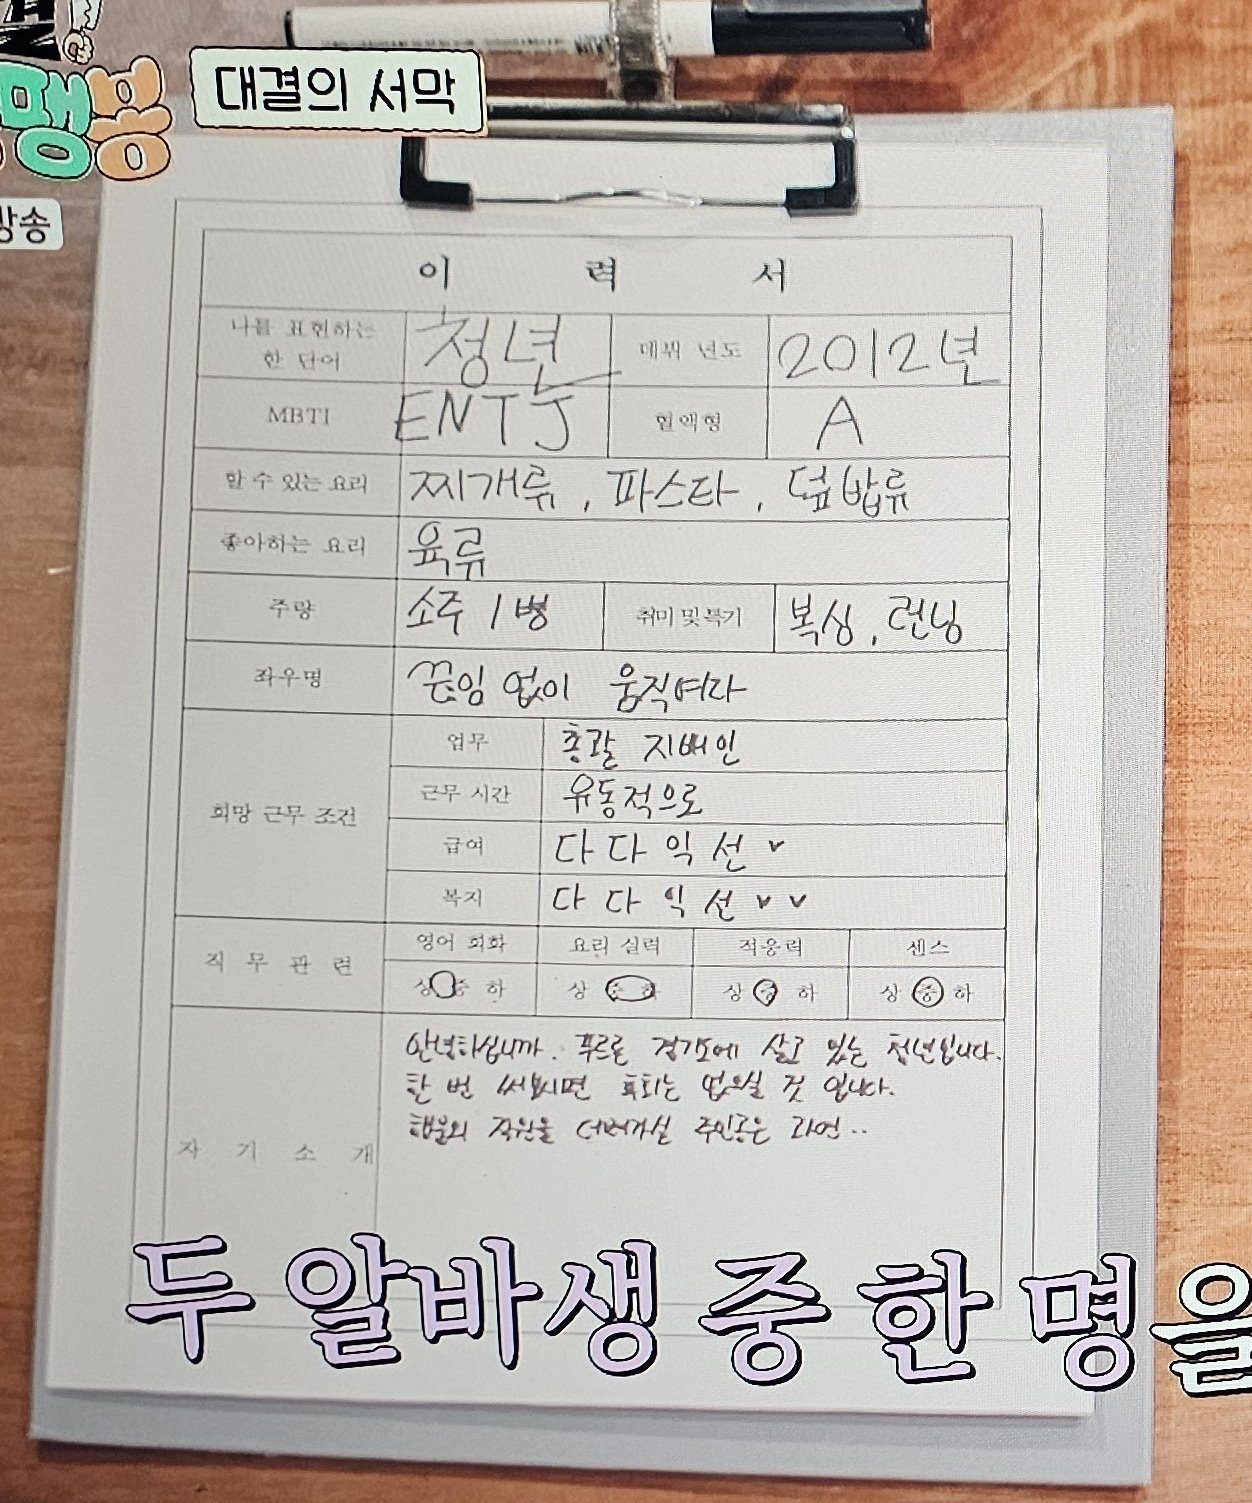 대결의 서막
맹
방송
이 력 서
나를 표현하는 한 단어 청년 데뷔 년도 2012년
MBTI ENTJ 혈액형 A
할 수 있는 요리 찌개류, 파스타, 덮밥류
좋아하는 요리 육류
주량 소주 1병 취미 및 특기 복싱, 런닝
좌우명 끊임 없이 움직여라
희망 근무 조건
업무 총괄 지배인
근무 시간 유동적으로
급여 다다익선
복지 다다익선
직 무 관 련
영어 회화 요리 실력 적응력 센스
상 하 상 하 상 중 하 상 중 하
자 기 소 개
안녕하십니까. 푸르른 경기도에 살고 있는 청년입니다.
한 번 써보시면 후회는 없으실 것 입니다.
행운의 직원을 데려가실 주인공은 과연..
두 알바생 중 한 명을